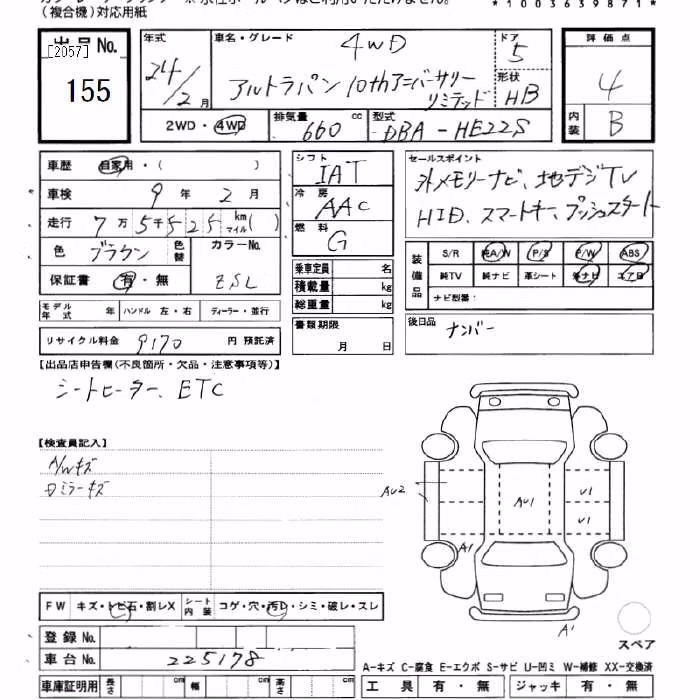 (複合機)対応用紙
*1003639871*
出品No.
[2057]
155
年式
24/2月
車名・グレード
4WD
アルトラパン 10thアニバーサリー
リミテッド
ドア
5
形状
HB
評価点
4
内装
B
2WD・4WD
排気量
660 cc
型式
DBA-HE22S
車歴 自家用・( )
車検 9年 2月
走行 7万5千525km マイル( )
色 ブラウン 色替
カラーNo. ZSL
保証書 有・無
モデル年式 年 ハンドル 左・右 ディーラー・並行
リサイクル料金 9170 円 預託済
シフト
IAT
冷房
AAC
燃料
G
乗車定員 名
積載量 kg
総重量 kg
書類期限
月 日
セールスポイント
外メモリーナビ、地デジTV
HID、スマートキー、プッシュスタート
装備品
S/R 純A/W P/S P/W ABS
純TV 純ナビ 革シート 外ナビ エアB
ナビ型番:
後日品 ナンバー
【出品店申告欄(不良箇所・欠品・注意事項等)】
シートヒーター、ETC
【検査員記入】
A/Wキズ
ミラーキズ
AU2
AU1
U1
U1
A1
A1
スペア
FW キズ・トビ石・割レX シート内装 コゲ・穴・汚レ・シミ・破レ・スレ
登録No.
車台No. 225178
A-キズ C-腐食 E-エクボ S-サビ U-凹ミ W-補修 XX-交換済
車庫証明用 長さ cm 幅 cm 高さ cm
工具 有・無 ジャッキ 有・無